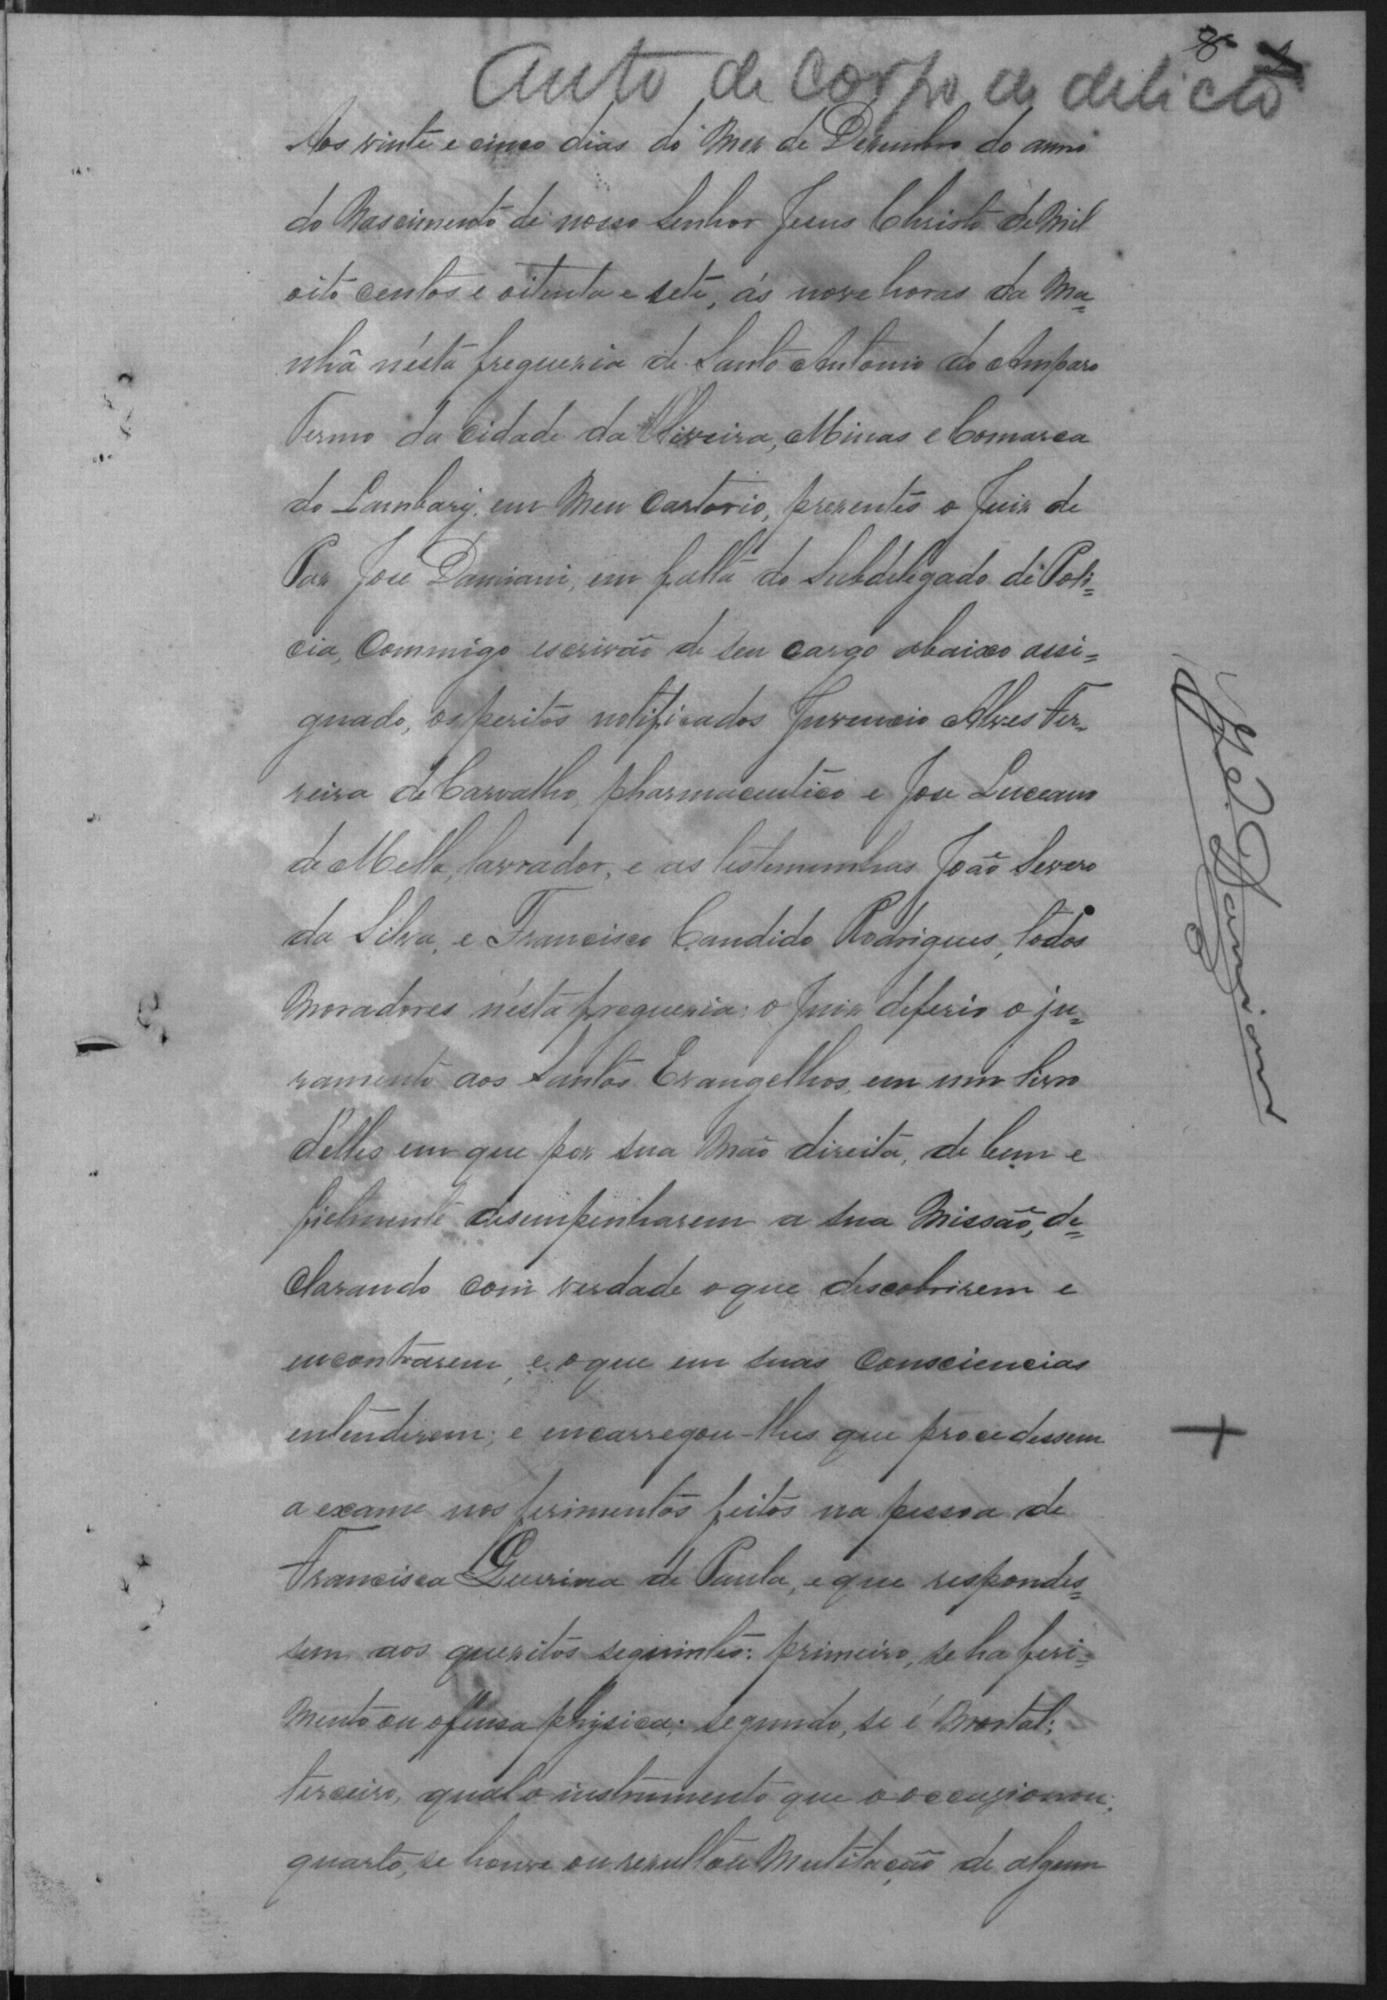 8
Auto de Corpo de delicto
Aos vinte e cinco dias do Mez de Dezembro do anno
do Nascimento de nosso Senhor Jesus Christo de Mil
oito centos e oitenta e sete, ás nove horas da Ma=
nhã n'ésta freguezia de Santo Antonio do Amparo
Termo da Cidade da Oliveira, Minas e Comarca
do Lambary, em Meu Cartorio, prezentes o Juiz de
Paz José Damiani, em falta do Subdelegado de Poli=
cia, Commigo escrivão de seu cargo abaixo assi=
gnado, os peritos notificados Juvencio Alves Fer=
reira de Carvalho, pharmaceutico e José Luceano
de Mello, lavrador, e as testemunhas João Severo
da Silva, e Francisco Candido Rodrigues, todos
Moradores n'ésta freguezia: o Juiz deferio o ju=
ramento aos Santos Evangelhos, em um livro
d'elles em que poz sua Mão direita, de bem e
fielmente desempenharem a sua Missão, de=
clarando com verdade o que descobrirem e
encontrarem, e o que em suas Consciencias
entenderem; e encarregou-lhes que procedessem
a exame nos ferimentos feitos na pessoa de
Francisca de Paula, e que respondes=
sem aos quezitos seguintes: primeiro, se ha feri=
Mento ou offensa physica; segundo, se é Mortal;
terceiro, qual o instrumento que o occazionou;
quarto, se houve ou rezultou Mutilação de algum
J. Damiani